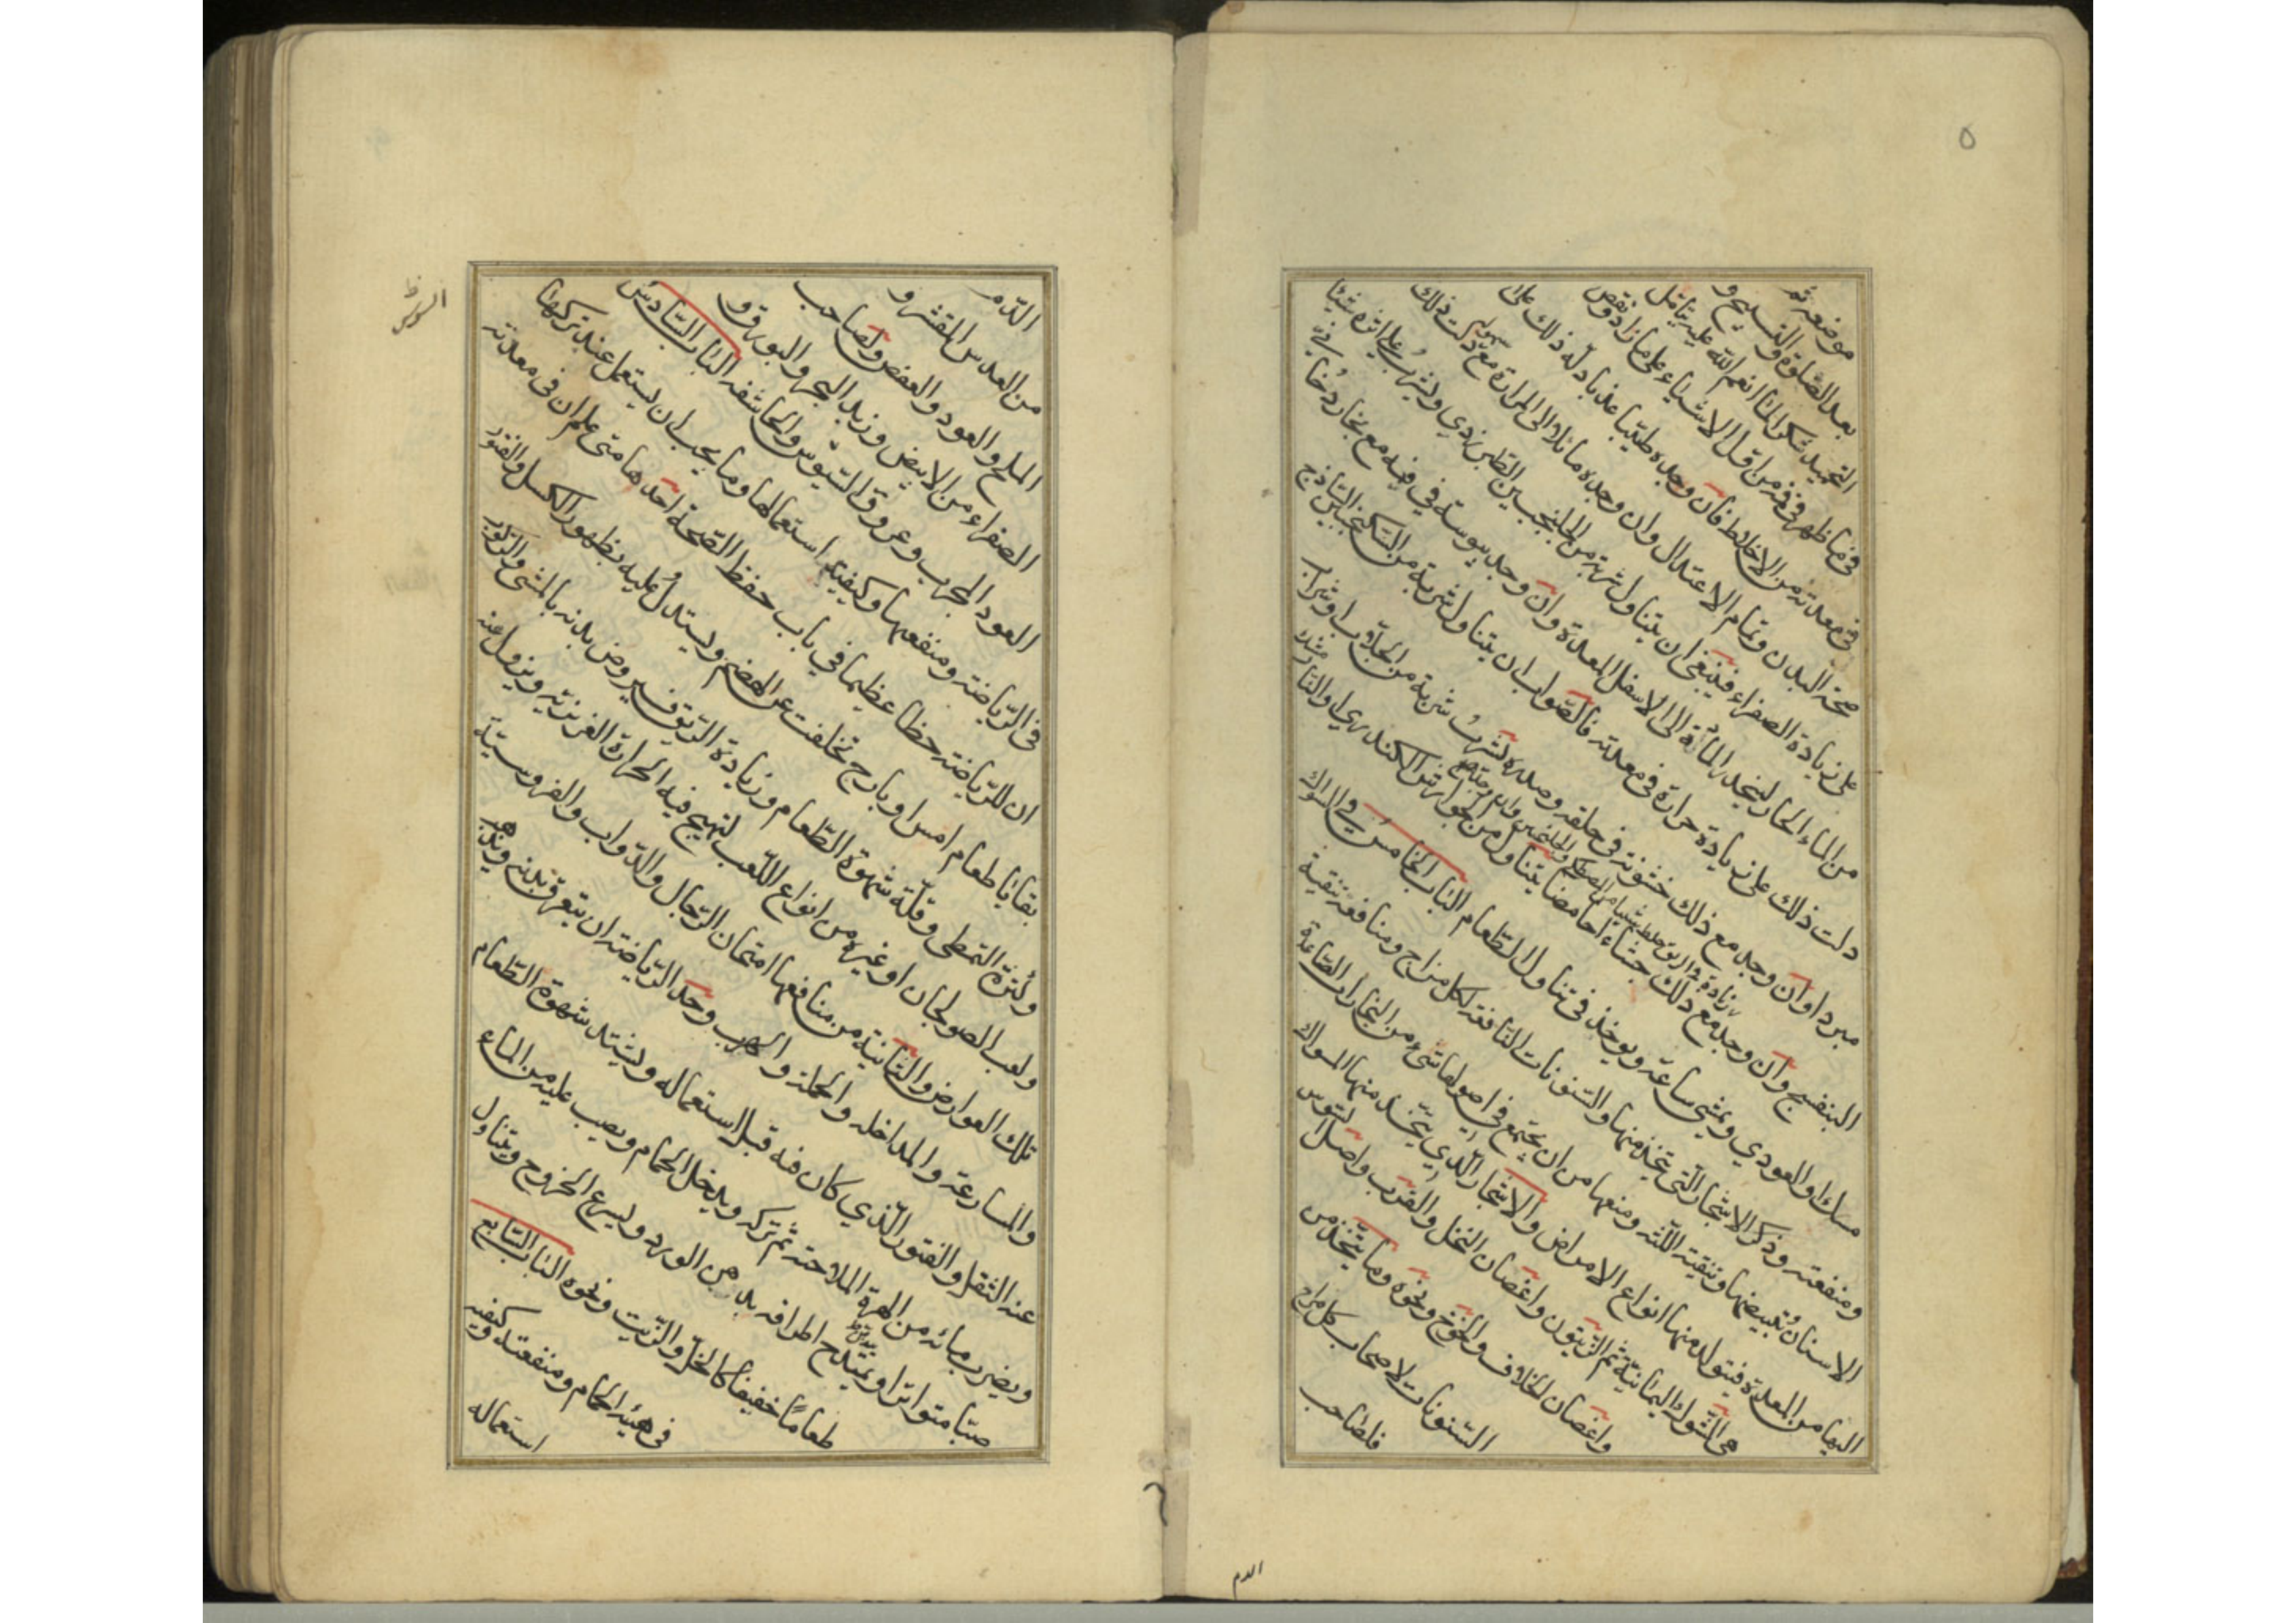 ٥
موضعه ثم
بعد الصلوة والتسبيح و
التحميد شكرا لما انعم الله عليه يتامل
في ما ظهر في فمه من اقل الاشياء على ما زاد ونقص
في معدته من الاخلاط فان وجده طيبا عذبا دله ذلك على
صحة البدن وتمام الاعتدال وان وجده مائلا الى المرارة مع دلت ذلك
على زيادة الصفراء فينبغي ان يتناول شربة من الجلنجبين الطبرزدي ويشرب على اثره شيئا
من الماء الحار لينحدر المأدة الى الاسفل المعدة وان وجد يبوسة في فيه مع بخار دخاني
دلت ذلك على زيادة حرارة في معدته فالصواب ان يتناول شربة من السكنجبين الساذج
مبردا وان وجد مع ذلك خشونة في حلقه وصدره يشرب شربة من الجلاب او شراب
البنفسج وان وجد مع ذلك جشاءا حامضا يتناول من الجوارش الكندري او النار
مسك او العودي ويمشي ساعة ويوخذ في تناول الطعام الباب الخامس في السواك
ومنفعته وذكر الاشجار التي تتخذ منها والسنونات النافعة لكل مزاج ومنافعه تنقية
الاسنان وتبييضها وتنقية اللثه ومنعها من ان يجتمع في اصولها شيء من البخارات الصاعدة
اليها من المعدة فيتولد منها انواع الامراض والاشجار الذي يتخذ منها المسواك
هي الشوك اليمانية ثم الزيتون واغصان النخل والقرب واصل السوس
واغصان الخلاف والخوخ ونحوه وما يتخذ من
السنونات لاصحاب كل مزاج
فلصاحب
الدم
الدم
من العدس المقشر و
الملح والعود والعفص ولصاحب
الصفراء من الابيض وزبد البحر والبورق و
العود المجرب وعروق السوس والحاشفه الباب السادس
في الرياضة ومنفعتها وكيفية استعمالها وما يجب ان يستعمل عند تركها
ان للرياضة حظا عظيما في باب حفظ الصحة احدها متى علم ان في معدته
بقايا طعام امس او بارح تخلفت عن الهضم ويستدل عليه بظهور الكسل والفتور
وكثرة التمطي وقلة شهوة الطعام وزيادة الريق فيروض بدنه بالمشي والركوب
ولعب الصولجان او غيره من انواع اللعب لتهيج فيه الحرارة الغريزية ويزول عنه
تلك العوارض والثانية من منافعها امتحان الرجال والدواب والفروسية
والمسارعة والمداخله والحملة والهرب وحد الرياضة ان يتعرق بدنه ويذهب
عنه الثقل والفتور الذي كان فيه قبل استعماله ويشتد شهوة الطعام
ويضرب مائه من المرة الملاحة ثم تركه ويدخل الحمام ويصب عليه من الماء
صبا متواترا اطرافه بدهن الورد ويسرع الخروج ويتناول
طعاما خفيفا كالخل والزيت ونحوه الباب السابع
في هيئه الحمام ومنفعته وكيفيه
استعماله